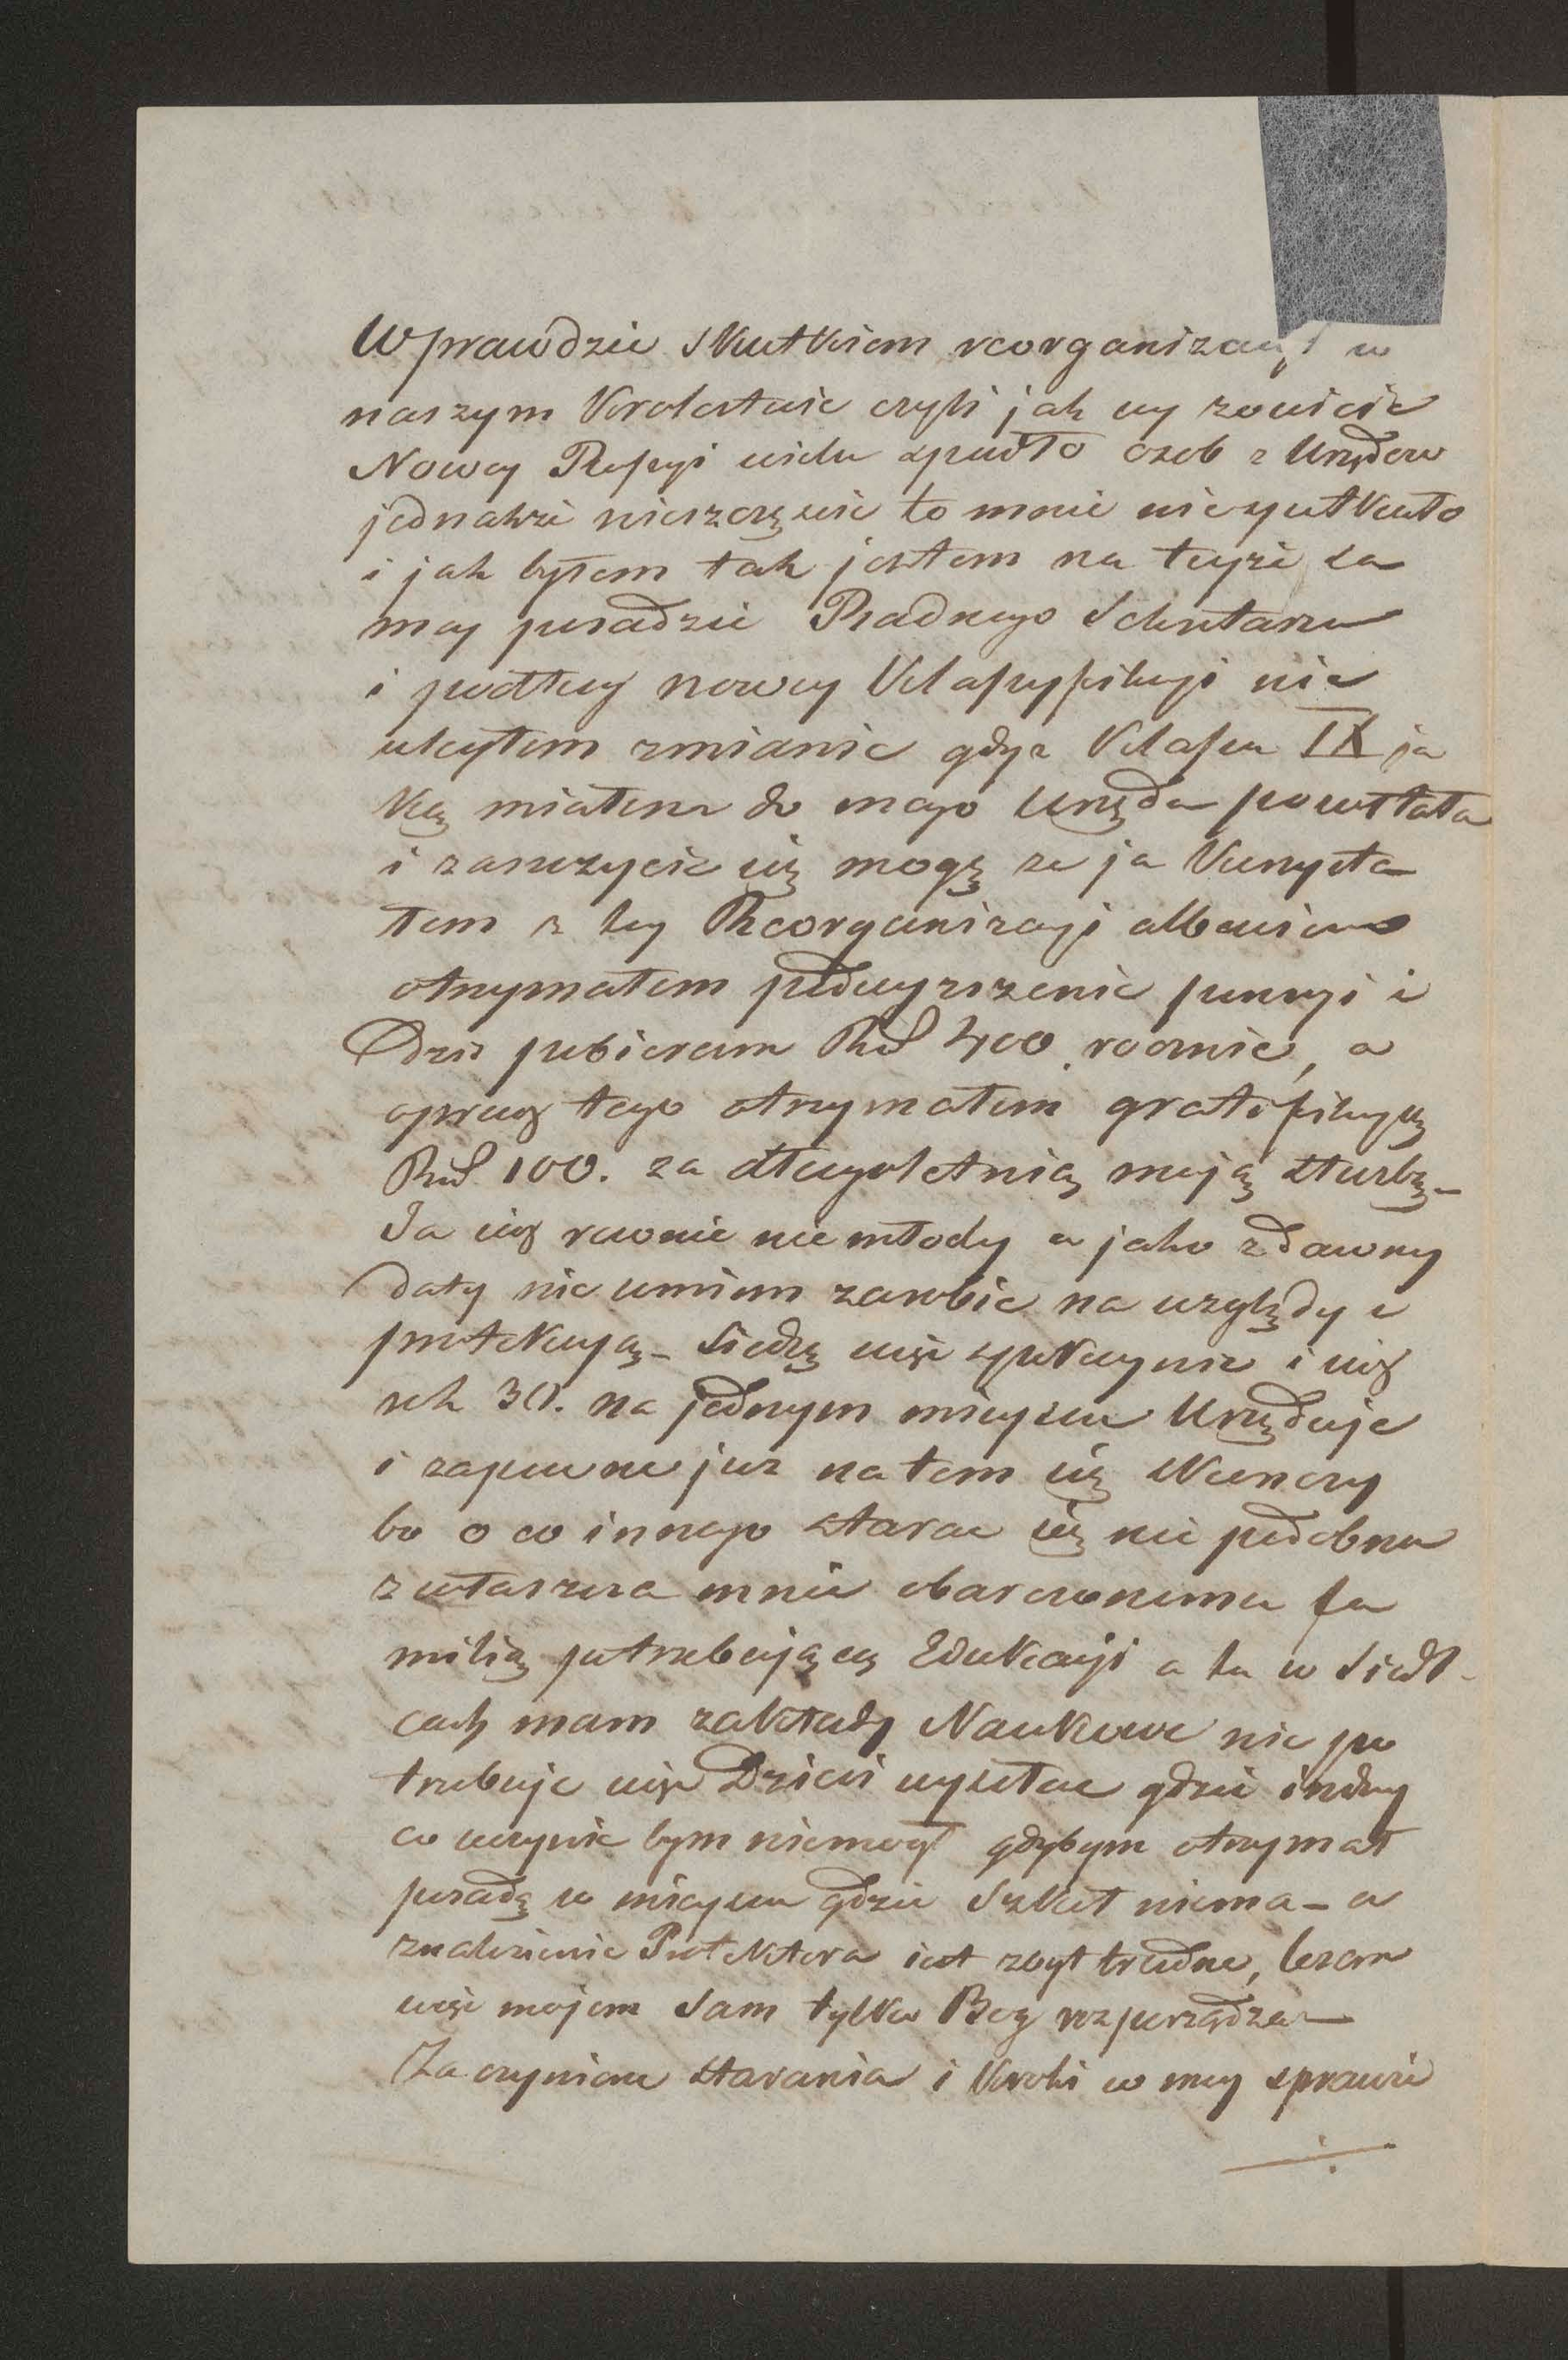 Wprawdzie skutkiem reorganizacyi w
naszym Krolestwie czyli jak wy zowicie
Nowey Rossyi wielu spadło osob z Urzędow
jednakze nieszczęscie to mnie niespotkało
i jak byłem tak jestem na teyże sa
mey posadzie Radnego Sekretarza
i podług nowey Klassyfikacyi nie
uległem zmianie gdyz Klassa IX ja
ką miałem do mego Urzędu pozostała
i zaszczycic się mogę ze ja Korzysta
łem z tey Reorganizacyi albowiem
otrzymałem podwyzszenie pensyi i
Dzis pobieram Rsr 400. rocznie, a
oprocz tego otrzymałem gratyfikacyą
Rsr 100. za długoletnią moją służbę –
Ja cios rownie niemłody a jako z dawney
daty nie umiem zarobic na względy i
protekcyą – siedzę więc spokoynie i cios
rok 30. na jednym mieyscu Urzęduje
i zapewne juz na tem się skonczy
bo o co innego starac się nie podobna
zwłaszcza mnie obarczonemu fa
milią potrzebującą Edukacyi a tu w Siedl-
cach mam zakłady Naukowe nie po
trzebuje więc Dzieci wysłac gdzie indziey
co uczynic bym niemogł gdybym otrzymał
posadę w mieyscu gdzie Szkoł niema – a
znalezienie Protektora jest zbyt trudne, losem
więc mojem sam tylko Bog rozporządza –
Za czynione starania i Kroki w mey sprawie